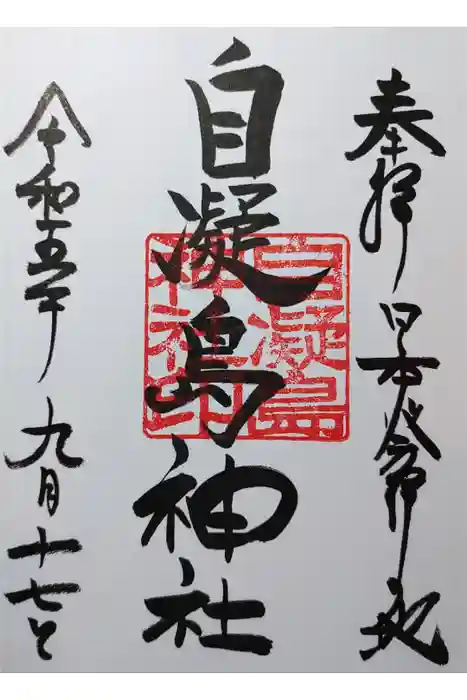 奉拝 日本発祥の地
自凝島神社
自凝島
神社印
令和五年 九月十七日